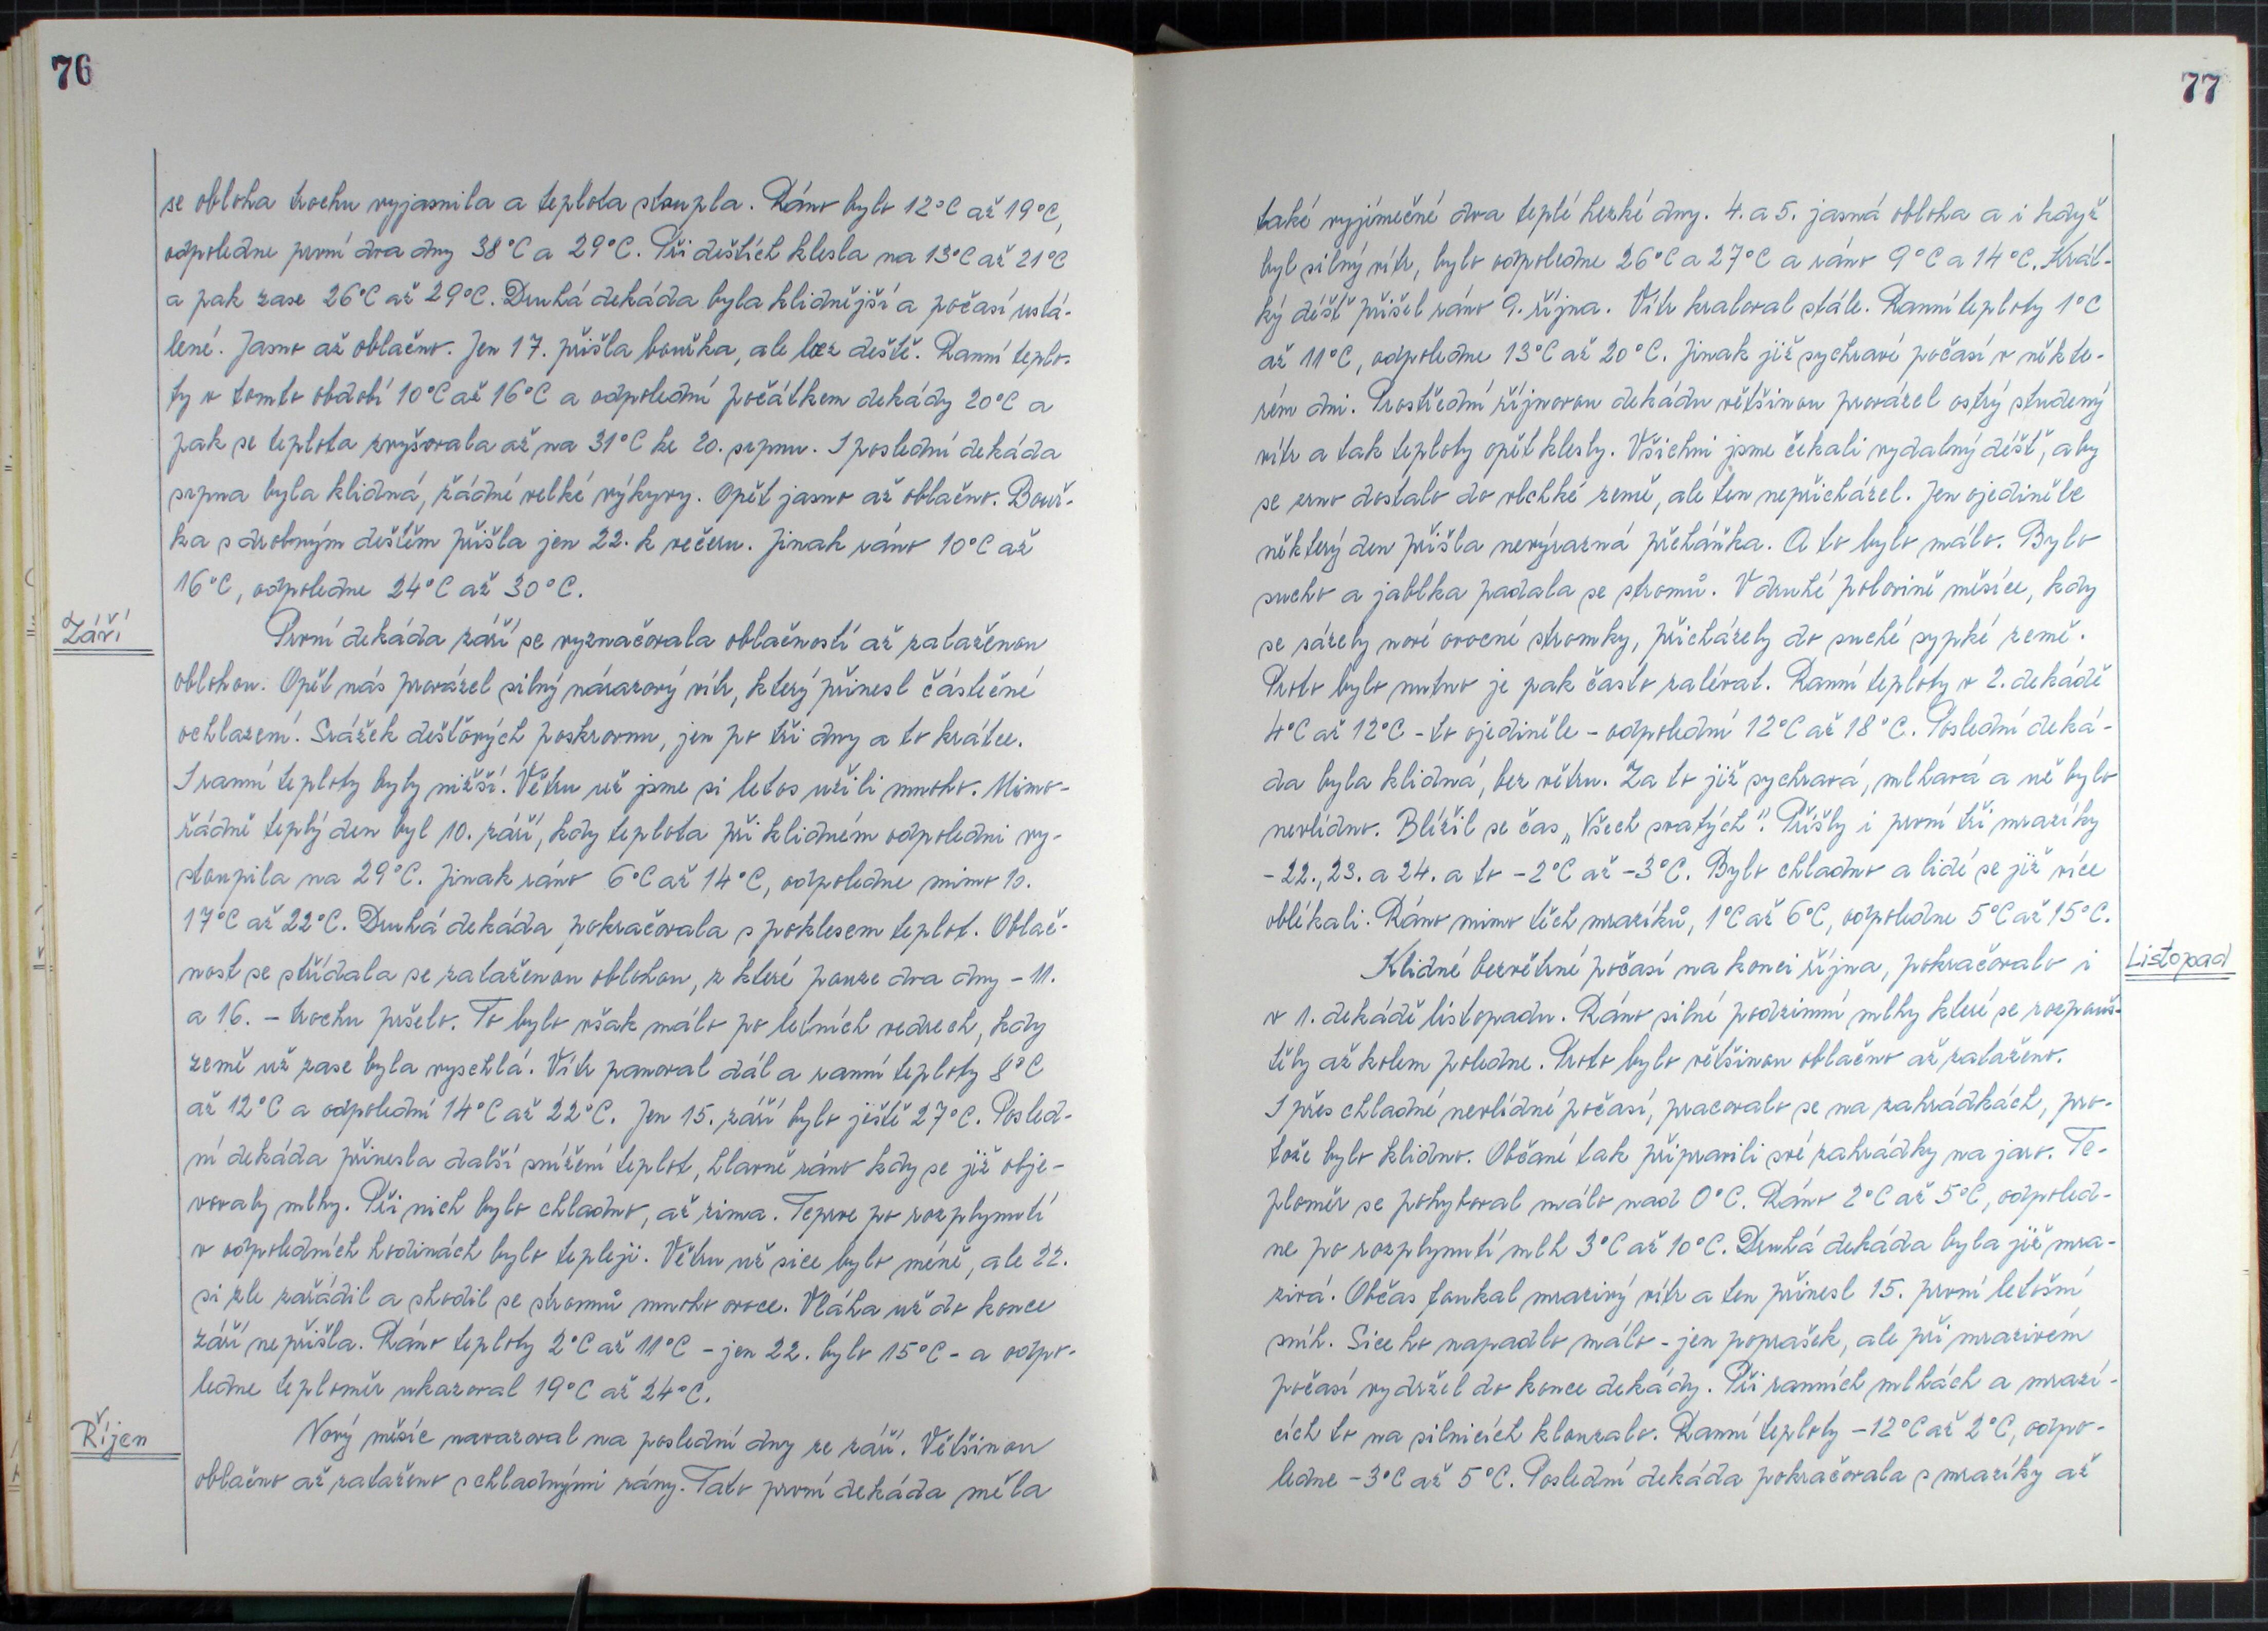 76
se obloha trochu vyjasnila a teplota stoupla. Ráno bylo 12°C až 19°C,
odpoledne první dva dny 38°C a 29°C. Při deštích klesla na 13°C až 21°C
a pak zase 26°C až 29°C. Druhá dekáda byla klidnější a počasí ustá-
lené. Jasno až oblačno. Jen 17. přišla bouřka, ale bez deště. Ranní teplo-
ty v tomto období 10°C až 16°C a odpolední počátkem dekády 20°C a
pak se teplota zvyšovala až na 31°C ke 20. srpnu. I poslední dekáda
srpna byla klidná, žádné velké výkyvy. Opět jasno až oblačno. Bouř-
ka s drobným deštěm přišla jen 22. k večeru. Jinak ráno 10°C až
16°C, odpoledne 24°C až 30°C.
Září
První dekáda září se vyznačovala oblačností až zataženou
oblohou. Opět nás provázel silný nárazový vítr, který přinesl částečné
ochlazení. Srážek dešťových poskrovnu, jen po tři dny a to krátce.
I ranní teploty byly nižší. Větru už jsme si letos užili mnoho. Mimo-
řádně teplý den byl 10. září, kdy teplota při klidném odpoledni vy-
stoupila na 29°C. Jinak ráno 6°C až 14°C, odpoledne mimo 10.
17°C až 22°C. Druhá dekáda pokračovala s poklesem teplot. Oblač-
nost se střídala se zataženou oblohou, z které pouze dva dny - 11.
a 16. - trochu pršelo. To bylo však málo po letních vedrech, kdy
země už zase byla vyschlá. Vítr panoval dál a ranní teploty 8°C
až 12°C a odpolední 14°C až 22°C. Jen 15. září bylo ještě 27°C. Posled-
ní dekáda přinesla další snížení teplot, hlavně ráno kdy se již obje-
vovaly mlhy. Při nich bylo chladno, až zima. Teprve po rozplynutí
v odpoledních hodinách bylo tepleji. Větru už sice bylo méně, ale 22.
si zle zařádil a shodil se stromů mnoho ovoce. Vláha už do konce
září nepřišla. Ráno teploty 2°C až 11°C - jen 22. bylo 15°C - a odpo-
ledne teploměr ukazoval 19°C až 24°C.
Říjen
Nový měsíc navazoval na poslední dny ze září. Většinou
oblačno až zataženo s chladnými rány. Tato první dekáda měla
77
také vyjímečné dva teplé hezké dny. 4. a 5. jasná obloha a i když
byl silný vítr, bylo odpoledne 26°C a 27°C a ráno 9°C a 14°C. Krát-
ký déšť přišel ráno 9. října. Vítr kraloval stále. Ranní teploty 1°C
až 11°C, odpoledne 13°C až 20°C. Jinak již sychravé počasí v někte-
rém dni. Prostřední říjnovou dekádu většinou provázel ostrý studený
vítr a tak teploty opět klesly. Všichni jsme čekali vydatný déšť, aby
se zrno dostalo do vlhké země, ale ten nepřicházel. Jen ojediněle
některý den přišla nevýrazná přeháňka. A to bylo málo. Bylo
sucho a jablka padala se stromů. V druhé polovině měsíce, kdy
se sázely nové ovocné stromky, přicházely do suché sypké země.
Proto bylo nutno je pak často zalévat. Ranní teploty v 2. dekádě
4°C až 12°C - to ojediněle - odpolední 12°C až 18°C. Poslední deká-
da byla klidná, bez větru. Za to již sychravá, mlhavá a už bylo
nevlídno. Blížil se čas „Všech svatých". Přišly i první tři mrazíky
- 22., 23. a 24. a to -2°C až -3°C. Bylo chladno a lidé se již více
oblékali. Ráno mimo těch mrazíků, 1°C až 6°C, odpoledne 5°C až 15°C.
Listopad
Klidné bezvětrné počasí na konci října, pokračovalo i
v 1. dekádě listopadu. Ráno silné podzimní mlhy které se rozpouš-
těly až kolem poledne. Proto bylo většinou oblačno až zataženo.
I přes chladné nevlídné počasí, pracovalo se na zahrádkách, pro-
tože bylo klidno. Občané tak připravili své zahrádky na jaro. Te-
ploměr se pohyboval málo nad 0°C. Ráno 2°C až 5°C, odpoled-
ne po rozplynutí mlh 3°C až 10°C. Druhá dekáda byla již mra-
zivá. Občas foukal mrazivý vítr a ten přinesl 15. první letošní
sníh. Sice ho napadlo málo - jen poprašek, ale při mrazivém
počasí vydržel do konce dekády. Při ranních mlhách a mrazí-
cích to na silnicích klouzalo. Ranní teploty -12°C až 2°C, odpo-
ledne -3°C až 5°C. Poslední dekáda pokračovala s mrazíky až